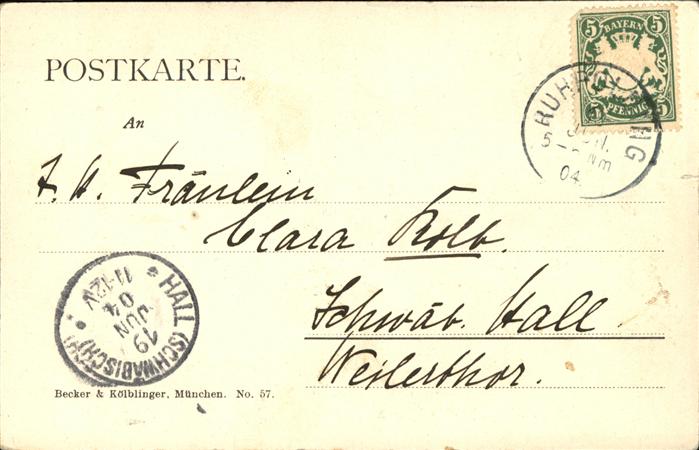 POSTKARTE.
5 BAYERN 5
5 PFENNIG 5
RUHPOLDING
5-  Nm
04
An
Fräulein
Clara Kolb.
Schwäb. Hall.
Weilerthor.
* HALL (SCHWÄBISCH) *
19
JUN
04
11-12V
Becker & Kölblinger, München. No. 57.